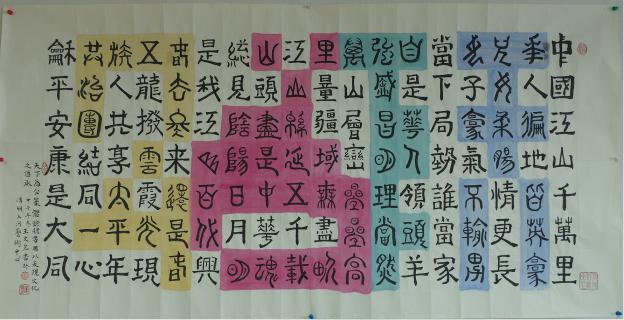 中國江山千萬里
華人遍地皆英豪
兒女柔腸情更長
女子豪氣不輸男
當下局勢誰當家
自是華人領頭羊
強盛昌明理當然
萬山層巒疊疊高
里量疆域森盡
江山綿延五千載
山頭盡是中華魂
總見陰陽日月明
是我江百代興
春去冬來還是春
五龍撥雲霞光現
族人共享太平年
共治團結同一心
龢平安康是大同
天下為公